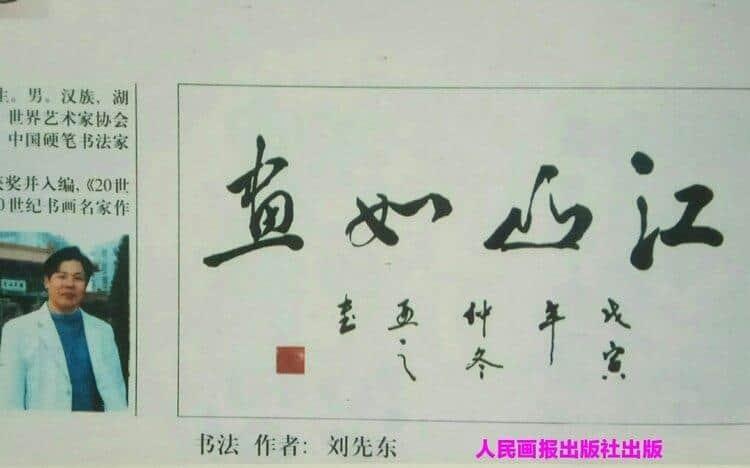 生。男。汉族，湖
世界艺术家协会
中国硬笔书法家
获奖并入编，《20世
0世纪书画名家作
江山如画
戊寅
年
仲冬
亚之
书
书法 作者：刘先东
人民画报出版社出版